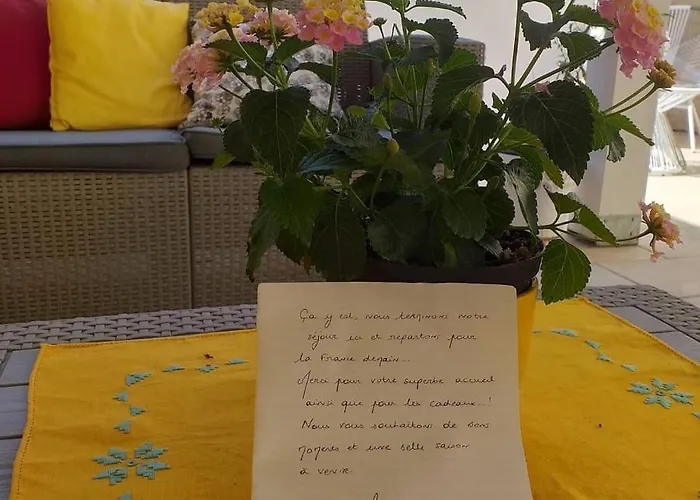 Ça y est, nous terminons notre
séjour ici et repartons pour
la France demain...
Merci pour votre superbe accueil
ainsi que pour les cadeaux...!
Nous vous souhaitons de bons
moments et une belle saison
à venir.